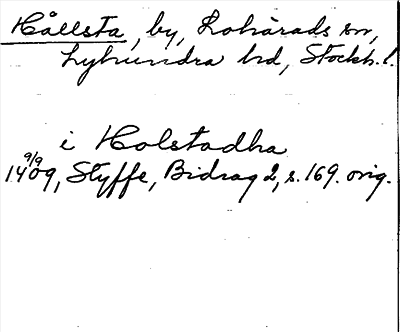 Hållsta, by, Lohärads sn,
Lyhundra hd, Stockh. l.
i Holstadha
9/9
1409, Styffe, Bidrag 2, s. 169. orig.